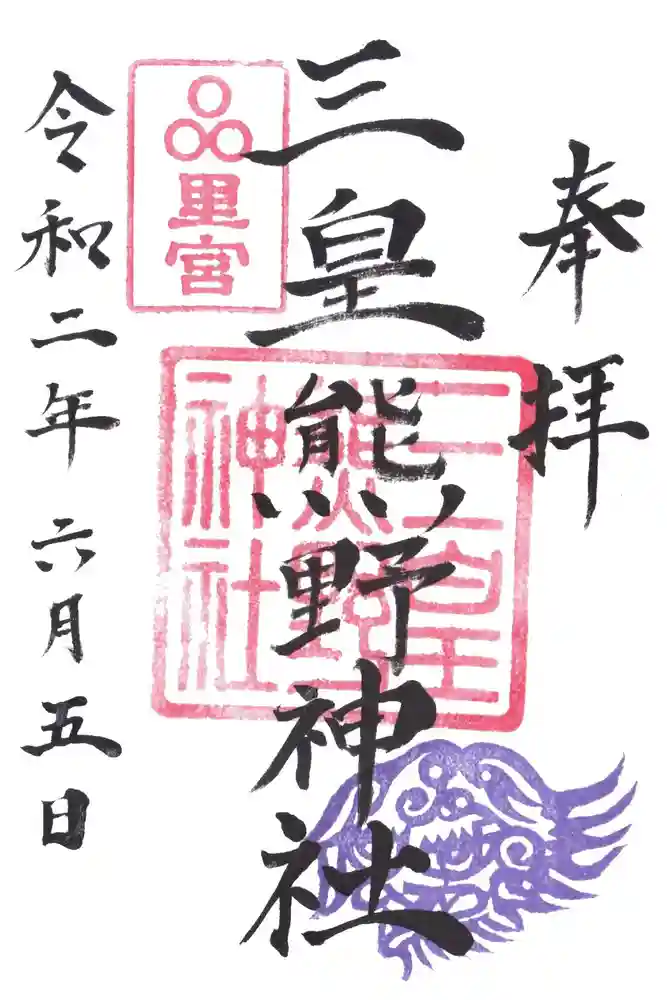 奉拝
三皇熊野神社
三皇熊野神社
里宮
令和二年 六月五日